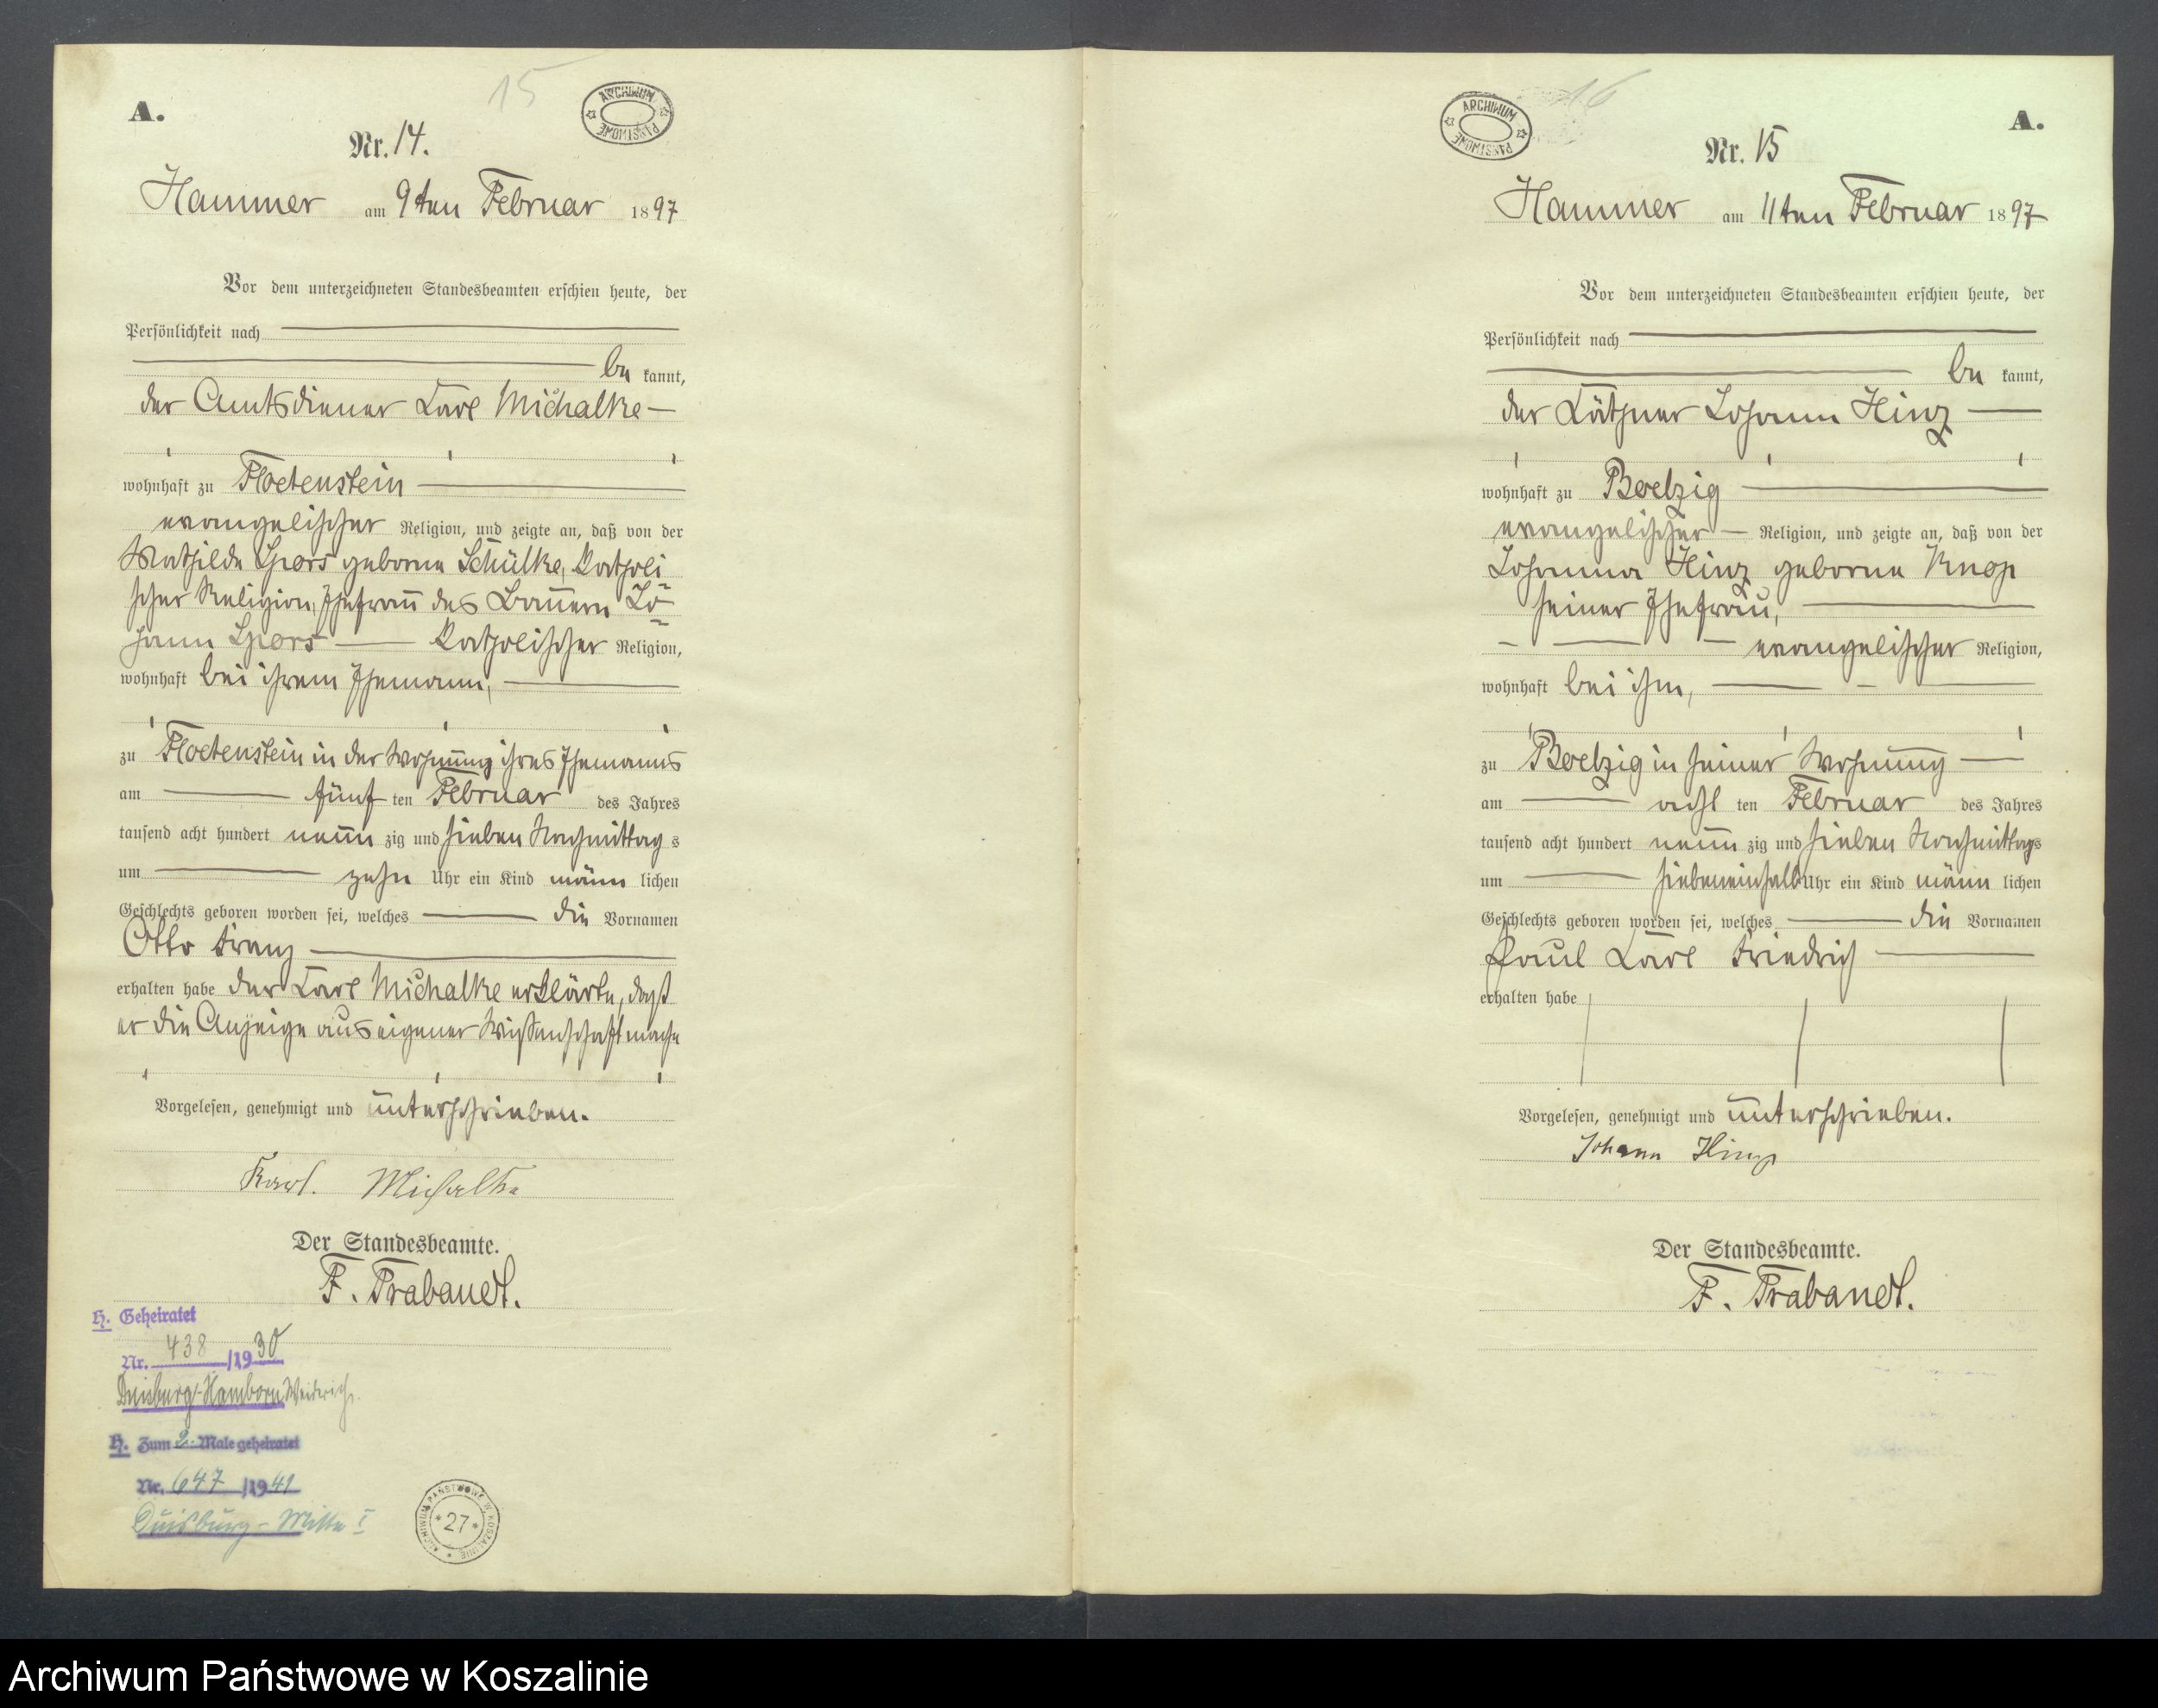 15
ARCHIWUM PAŃSTWOWE
A.
Nr. 14.
Hammer am 9ten Februar 1897
Vor dem unterzeichneten Standesbeamten erschien heute, der
Persönlichkeit nach
be kannt,
der Amtsdiener Carl Michalke
wohnhaft zu Floetenstein
evangelischer Religion, und zeigte an, daß von der
Mathilde Spors geborne Schülke, katholi
scher Religion, Ehefrau des Bauern Jo=
hann Spors katholischer Religion,
wohnhaft bei ihrem Ehemann,
zu Floetenstein in der Wohnung ihres Ehemanns
am fünf ten Februar des Jahres
tausend acht hundert neun zig und sieben Nachmittag s
um zehn Uhr ein Kind männ lichen
Geschlechts geboren worden sei, welches die Vornamen
Otto Franz
erhalten habe der Carl Michalke erklärte, daß
er die Anzeige aus eigener Wissenschaft mache
Vorgelesen, genehmigt und unterschrieben.
Karl. Michalke
Der Standesbeamte.
F. Trabandt.
H. Geheiratet
Nr. 438 /1930
Duisburg-Hamborn Meiderich.
H. Zum 2. Male geheiratet
Nr. 647 /1941
Duisburg-Mitte I
ARCHIWUM PAŃSTWOWE W KOSZALINIE
* 27 *
16
ARCHIWUM PAŃSTWOWE
A.
Nr. 15
Hammer am 11ten Februar 1897
Vor dem unterzeichneten Standesbeamten erschien heute, der
Persönlichkeit nach
be kannt,
der Käthner Johann Hinz
wohnhaft zu Boelzig
evangelischer Religion, und zeigte an, daß von der
Johanna Hinz geborne Knop
seiner Ehefrau,
evangelischer Religion,
wohnhaft bei ihm,
zu Boelzig in seiner Wohnung
am acht ten Februar des Jahres
tausend acht hundert neun zig und sieben Nachmittags
um siebeneinhalb Uhr ein Kind männ lichen
Geschlechts geboren worden sei, welches die Vornamen
Paul Carl Friedrich
erhalten habe
Vorgelesen, genehmigt und unterschrieben.
Johann Hinz
Der Standesbeamte.
F. Trabandt.
Archiwum Państwowe w Koszalinie